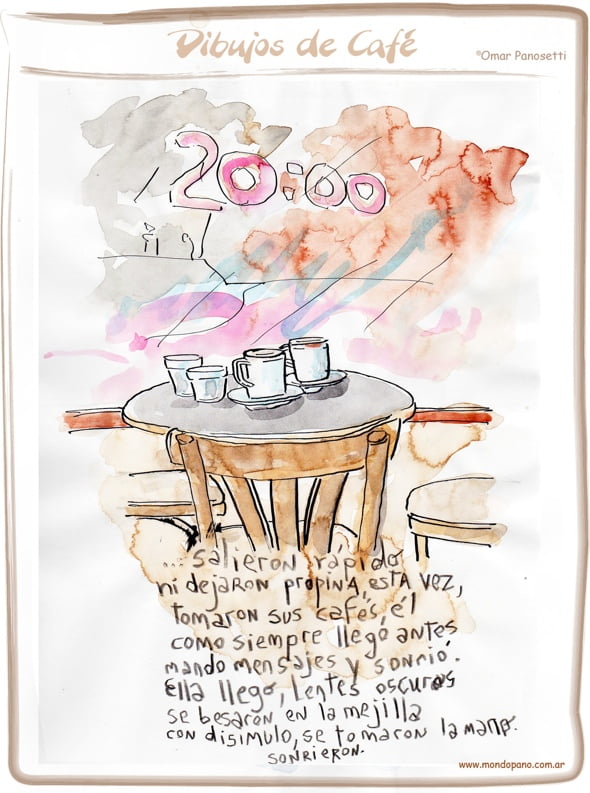 Dibujos de Café
©Omar Panosetti
20:00
... salieron rápido
ni dejaron propina, esta vez,
tomaron sus cafés, él
como siempre llegó antes
mando mensajes y sonrió.
Ella llegó, lentes oscuros
se besaron en la mejilla
con disimulo, se tomaron la mano.
sonrieron.
www.mondopano.com.ar